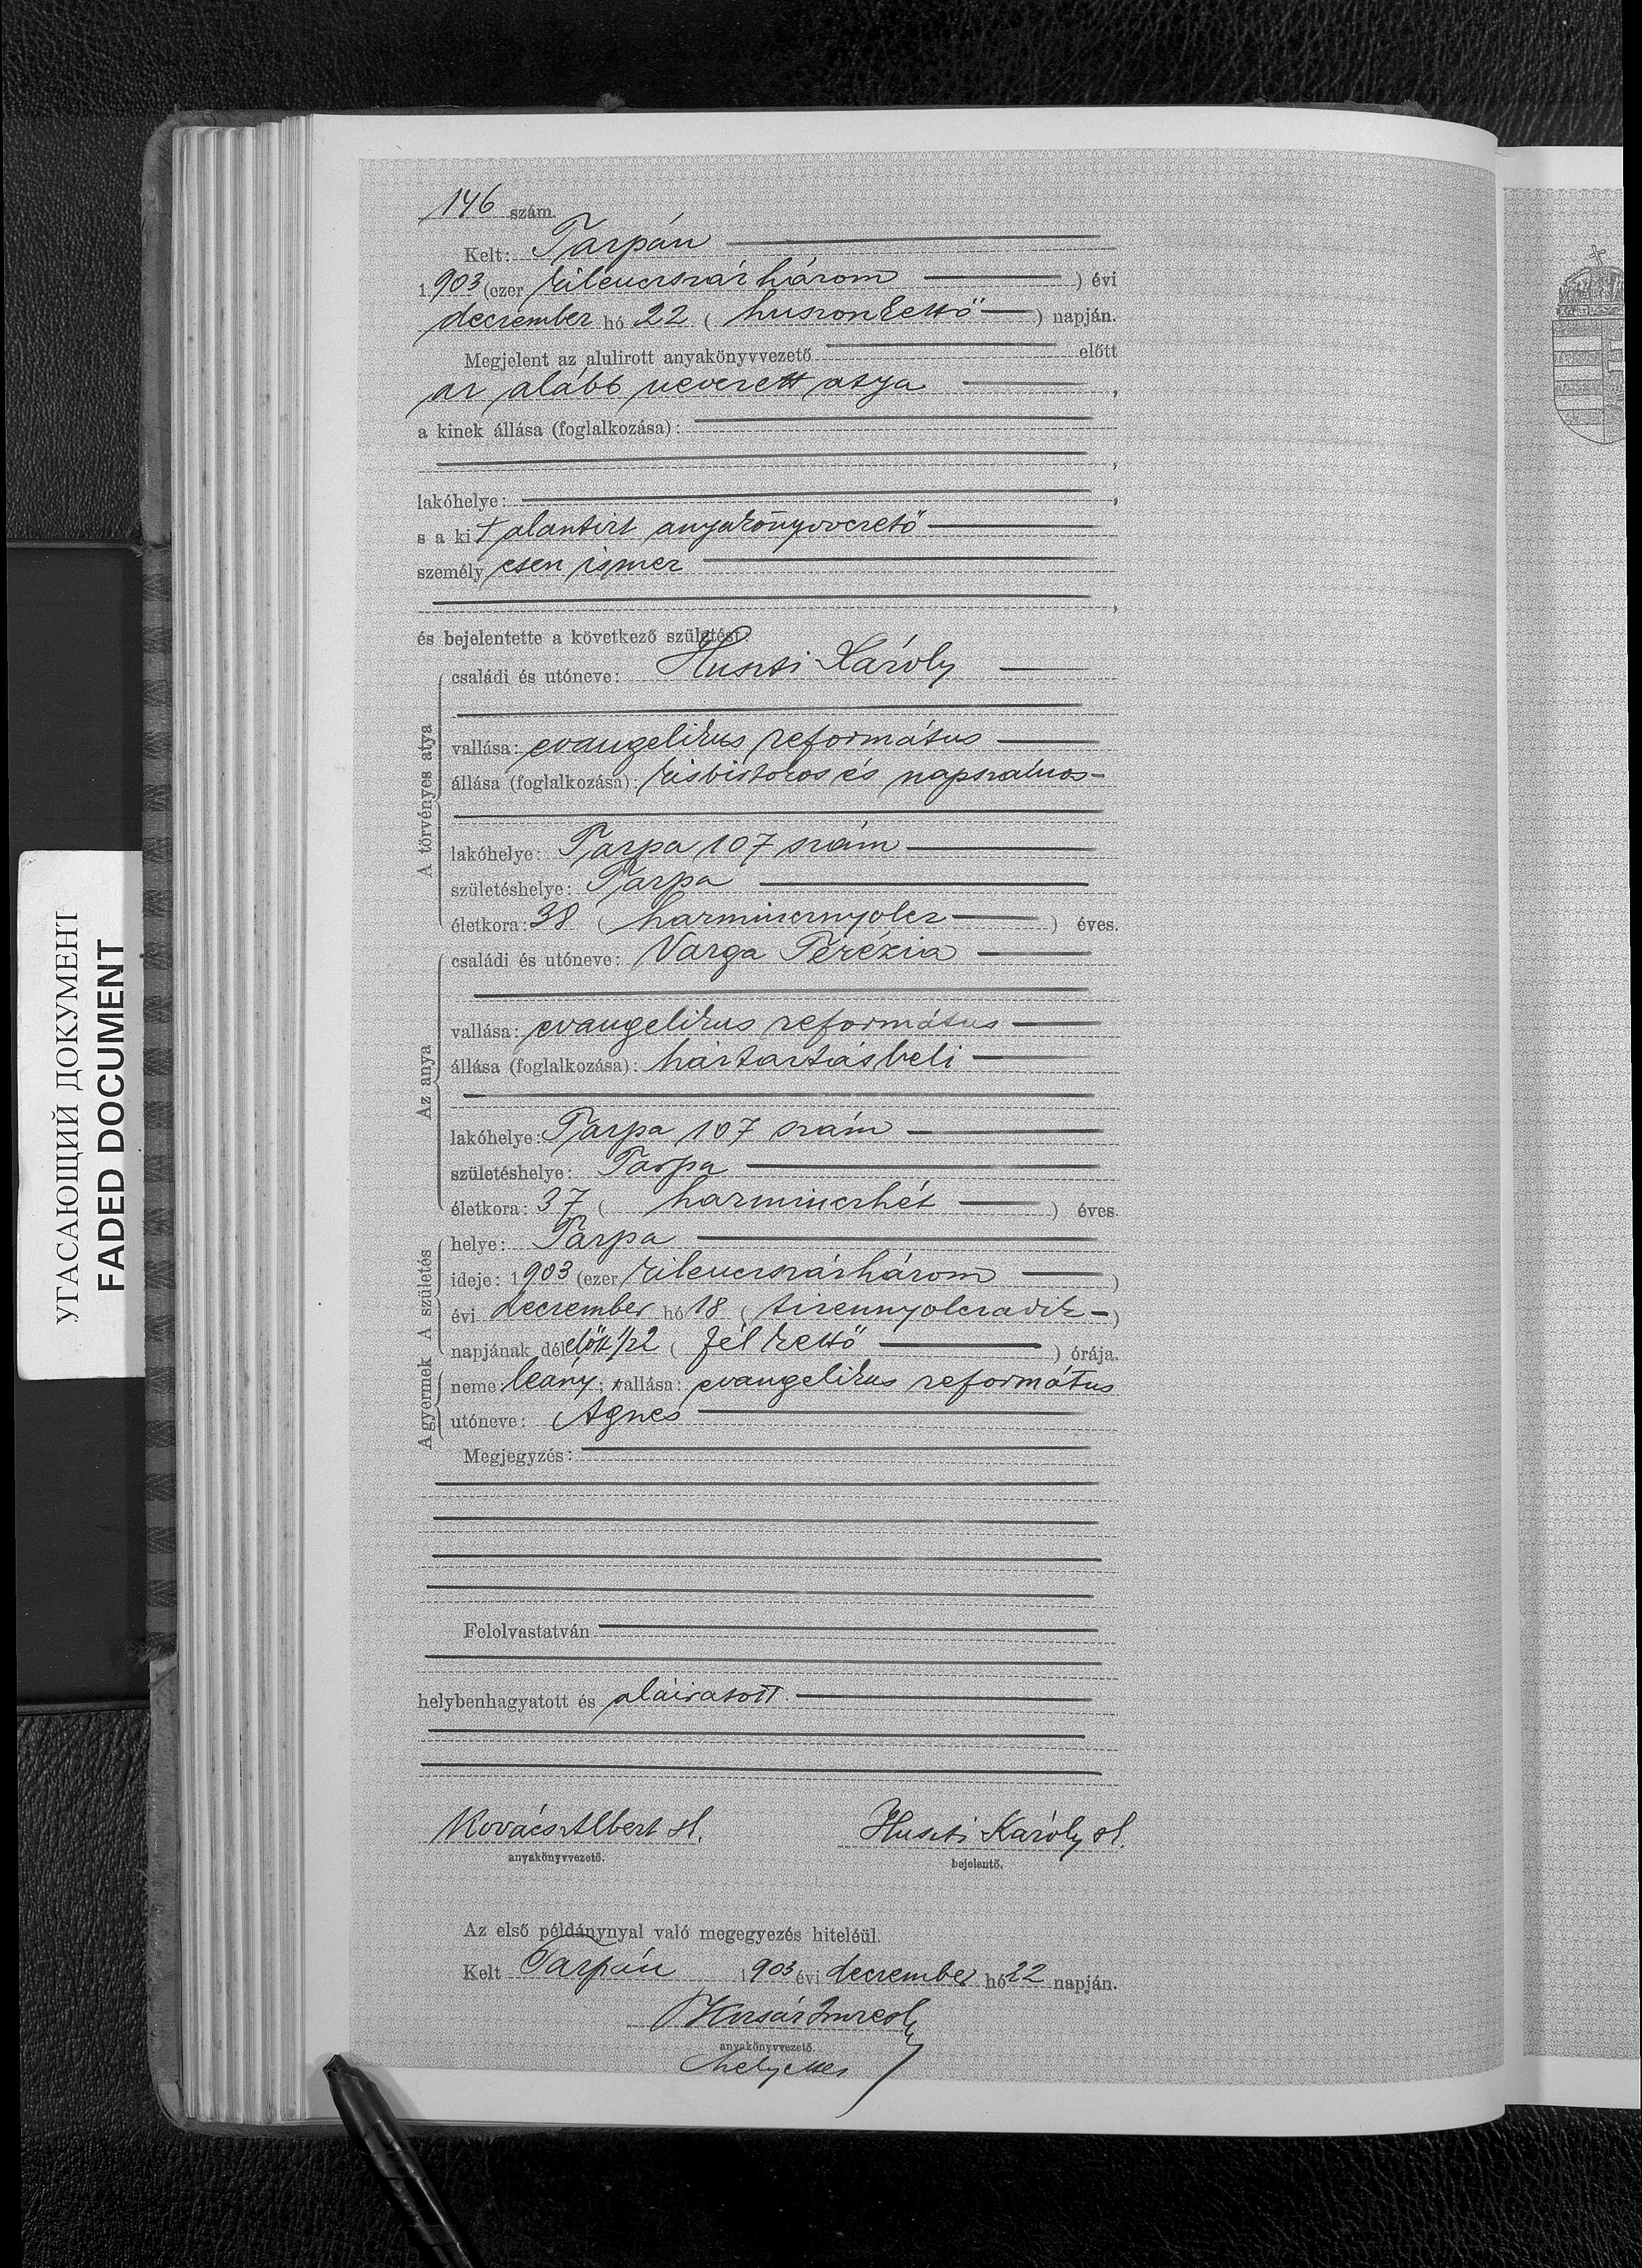 146 szám.
Kelt: Tarpán
1903 (ezer kilencszázhárom) évi
deczember hó 22 (huszonkettő) napján.
Megjelent az alulirott anyakönyvvezető előtt
az alább nevezett atya,
a kinek állása (foglalkozása):
,
lakóhelye: ,
s a kit alantirt anyakönyvvezető
személyesen ismer
,
és bejelentette a következő születést:
A törvényes atya
családi és utóneve: Huszti Károly
vallása: evangelikus református
állása (foglalkozása): kisbirtokos és napszámos
lakóhelye: Tarpa 107 szám
születéshelye: Tarpa
életkora: 38 (harmincznyolcz) éves.
Az anya
családi és utóneve: Varga Terézia
vallása: evangelikus református
állása (foglalkozása): háztartásbeli
lakóhelye: Tarpa 107 szám
születéshelye: Tarpa
életkora: 37 (harminczhét) éves.
A születés
helye: Tarpa
ideje: 1903 (ezer kilenczszázhárom)
évi deczember hó 18 (tizennyolczadik)
napjának délelőtt 1/2 2 (fél kettő) órája.
A gyermek
neme: leány; vallása: evangelikus református
utóneve: Ágnes
Megjegyzés:
Felolvastatván
helybenhagyatott és aláiratott.
Kovács Albert
anyakönyvvezető.
Huszti Károly
bejelentő.
Az első példánynyal való megegyezés hiteléül.
Kelt Tarpán 1903 évi deczember hó 22 napján.
anyakönyvvezető.
helyettes
УГАСАЮЩИЙ ДОКУМЕНТ
FADED DOCUMENT